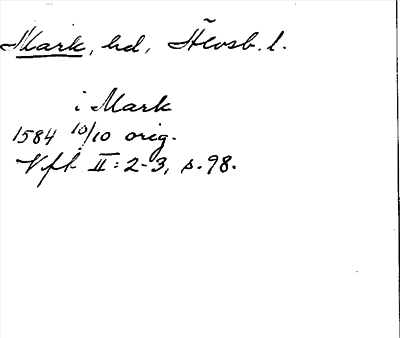 Mark, hd, Älvsb. l.
i Mark
1584 10/10 orig.
Vft II: 2-3, s. 98.